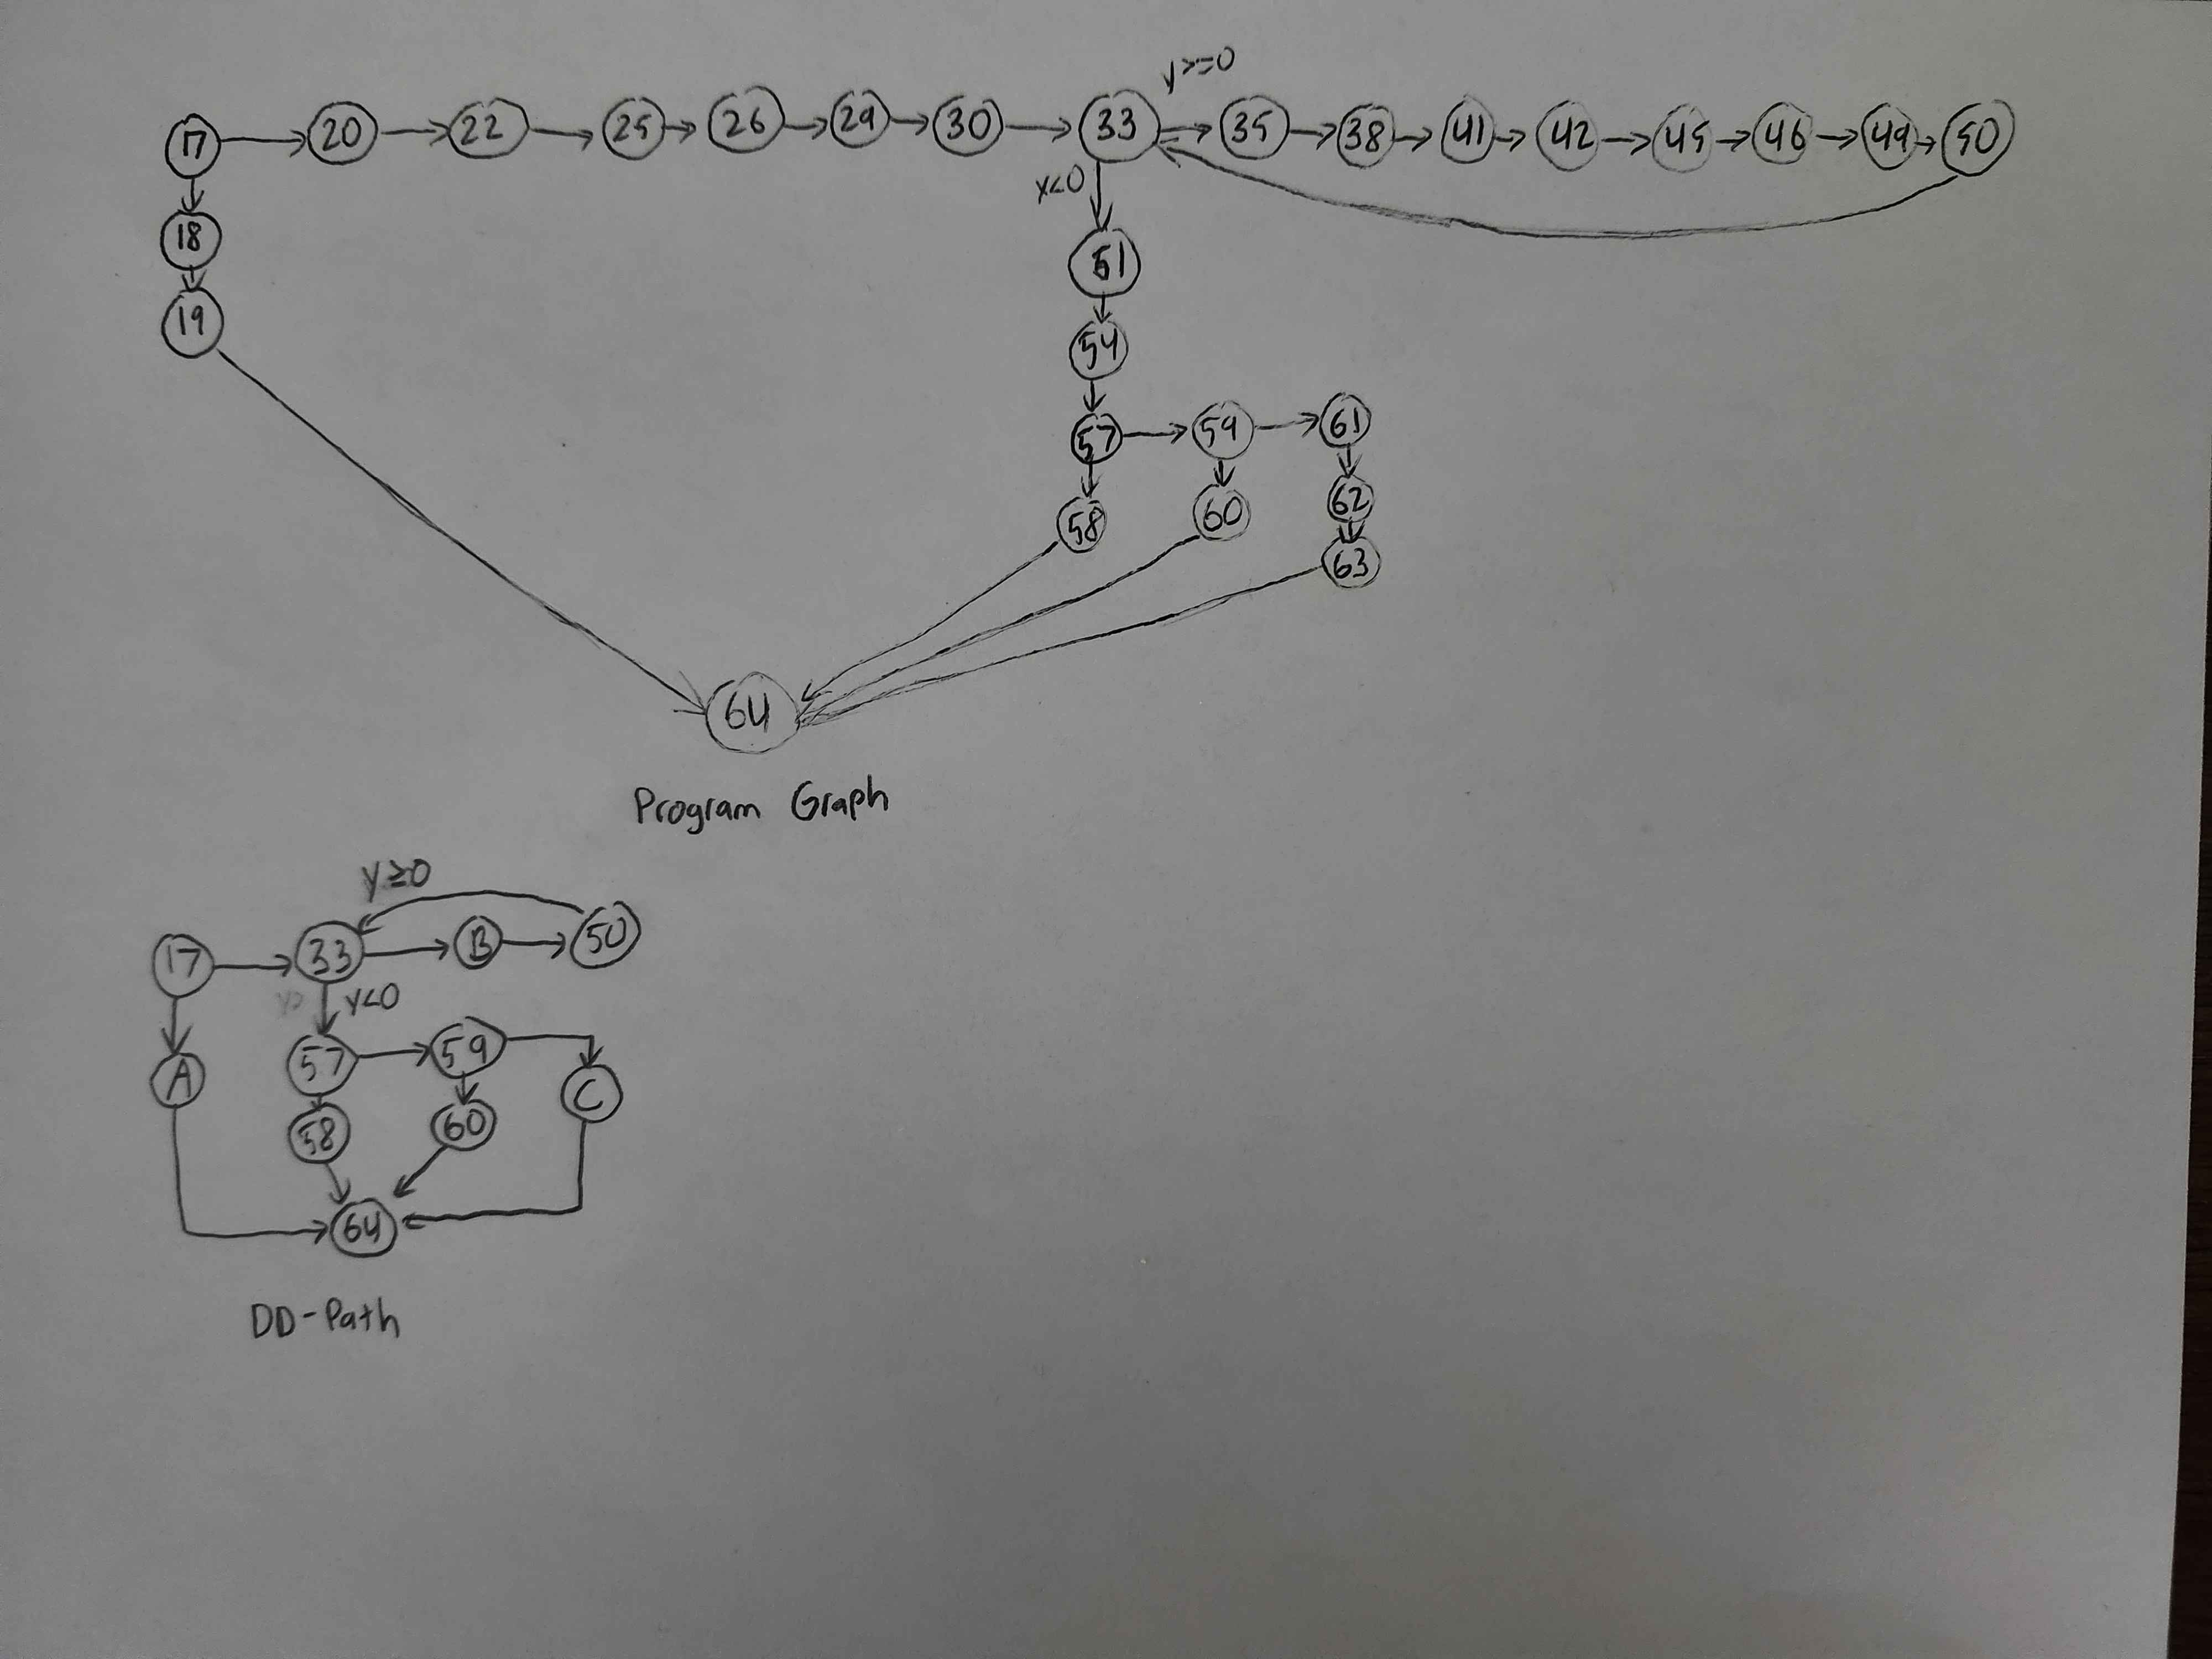 y>=0
17 20 22 25 26 29 30 33 35 38 41 42 45 46 49 50
y<0
18
51
19
54
57 59 61
58 60 62
63
64
Program Graph
y≥0
17 33 B 50
y<0
A 57 59 C
58 60
64
DD-Path